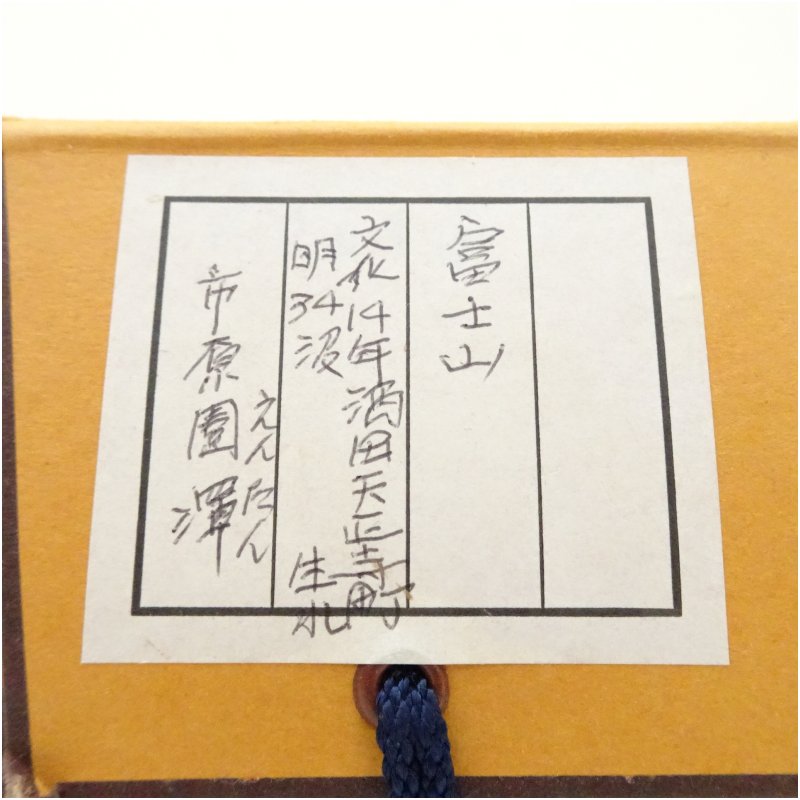 富士山
文化14年酒田天正寺町
生れ
明34没
市原圓潭
えんたん